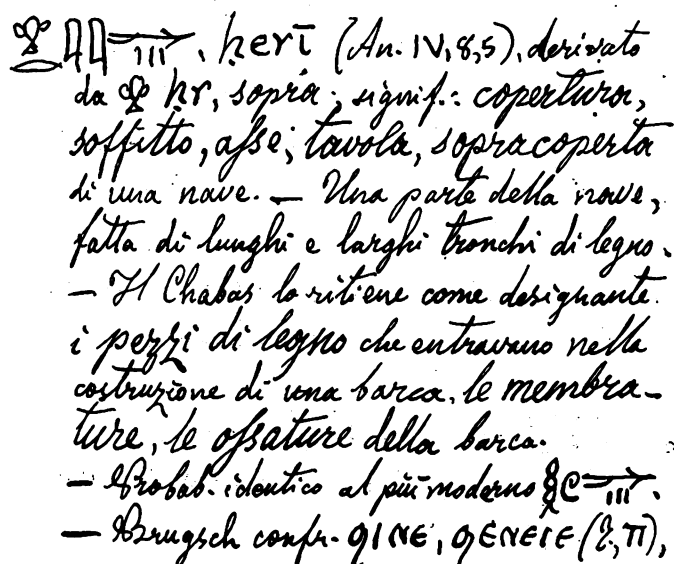 𓁷𓂋𓇋𓇋𓆱𓏥, ḥerī (An. IV, 8, 5), derivato
da 𓁷 ḥr, sopra; signif.: copertura,
soffitto, asse, tavola, sopracoperta
di una nave. — Una parte della nave,
fatta di lunghi e larghi tronchi di legno.
— Il Chabas lo ritiene come designante
i pezzi di legno che entravano nella
costruzione di una barca, le membra-
ture, le ossature della barca.
— Probab. identico al più moderno 𓎛𓏲𓆱𓏥.
— Brugsch confr. ϩⲓⲛⲉ, ϩⲉⲛⲉⲓⲉ